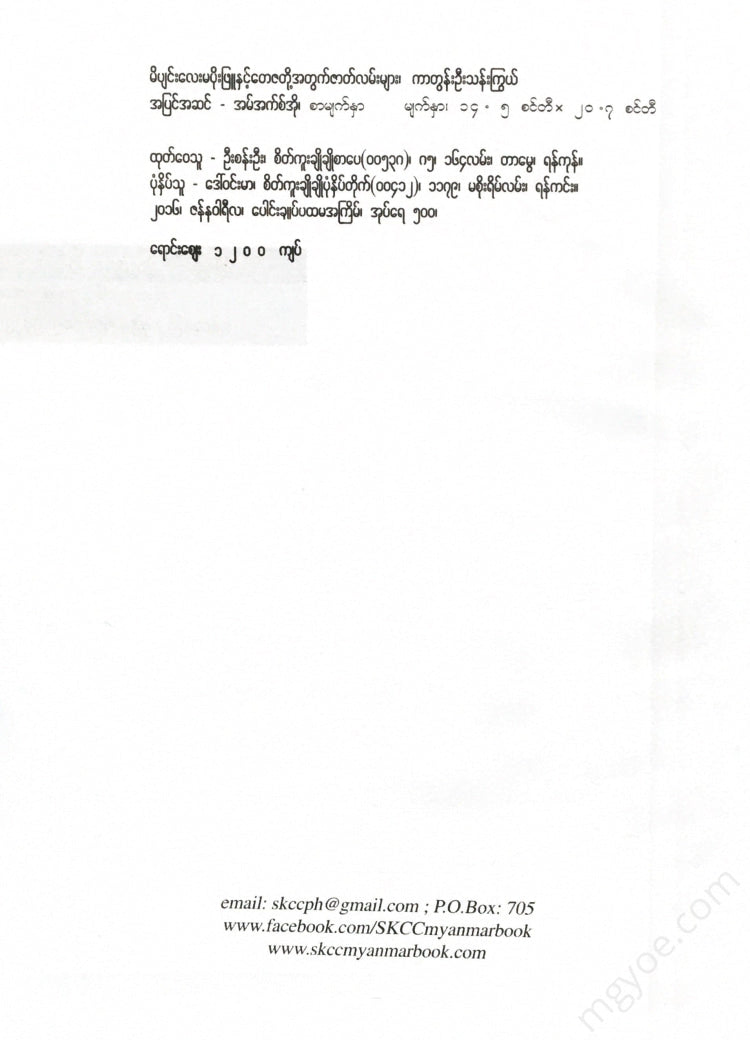 မိပျင်းလေးမပိုးဖြူနှင့်တေဇတို့အတွက်ဇာတ်လမ်းများ၊ ကာတွန်းဦးသန်းကြွယ်
အပြင်အဆင် - အမ်အက်စ်အို၊ စာမျက်နှာ မျက်နှာ၊ ၁၄.၅ စင်တီ × ၂၀.၇ စင်တီ
ထုတ်ဝေသူ - ဦးစန်းဦး၊ စိတ်ကူးချိုချိုစာပေ(၀၀၅၃၈)၊ ဂ၅၊ ၁၆၄လမ်း၊ တာမွေ၊ ရန်ကုန်။
ပုံနှိပ်သူ - ဒေါ်ဝင်းမာ၊ စိတ်ကူးချိုချိုပုံနှိပ်တိုက်(၀၀၄၁၂)၊ ၁၁၇၉၊ မစိုးရိမ်လမ်း၊ ရန်ကင်း။
၂၀၁၆၊ ဇန်နဝါရီလ၊ ပေါင်းချုပ်ပထမအကြိမ်၊ အုပ်ရေ ၅၀၀၊
ရောင်းဈေး ၁၂၀၀ ကျပ်
email: skccph@gmail.com ; P.O.Box: 705
www.facebook.com/SKCCmyanmarbook
www.skccmyanmarbook.com
mgyoe.com